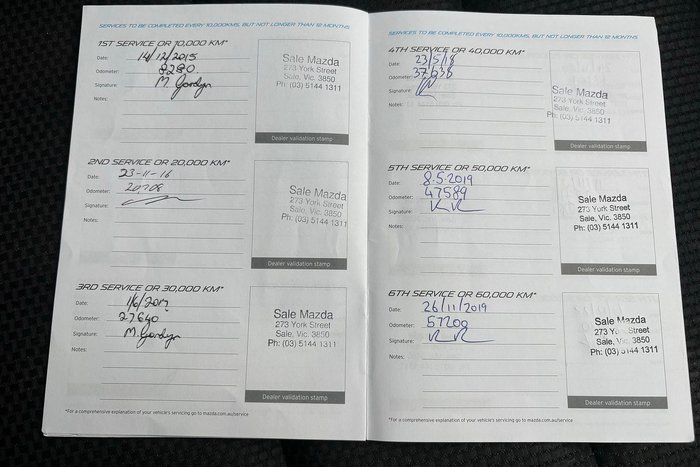 SERVICES TO BE COMPLETED EVERY 10,000KMS, BUT NOT LONGER THAN 12 MONTHS
1ST SERVICE OR 10,000 KM*
Date: 14/12/2015
Odometer: 8280
Signature: M. Gordyn
Notes:
Sale Mazda
273 York Street
Sale, Vic. 3850
Ph: (03) 5144 1311
Dealer validation stamp
2ND SERVICE OR 20,000 KM*
Date: 23-11-16
Odometer: 20708
Signature:
Notes:
Sale Mazda
273 York Street
Sale, Vic. 3850
Ph: (03) 5144 1311
Dealer validation stamp
3RD SERVICE OR 30,000 KM*
Date: 1/6/2017
Odometer: 27640
Signature: M. Gordyn
Notes:
Sale Mazda
273 York Street
Sale, Vic. 3850
Ph: (03) 5144 1311
Dealer validation stamp
*For a comprehensive explanation of your vehicle's servicing go to mazda.com.au/service
SERVICES TO BE COMPLETED EVERY 10,000KMS, BUT NOT LONGER THAN 12 MONTHS
4TH SERVICE OR 40,000 KM*
Date: 23/5/18
Odometer:
Signature:
Notes:
Sale Mazda
273 York Street
Sale, Vic. 3850
Ph: (03) 5144 1311
Dealer validation stamp
5TH SERVICE OR 50,000 KM*
Date: 8.5.2019
Odometer: 47589
Signature:
Notes:
Sale Mazda
273 York Street
Sale, Vic. 3850
Ph: (03) 5144 1311
Dealer validation stamp
6TH SERVICE OR 60,000 KM*
Date: 26/11/2019
Odometer: 57209
Signature:
Notes:
Sale Mazda
273 Street
Sale, 3850
Ph: (03) 5144 1311
Dealer validation stamp
*For a comprehensive explanation of your vehicle's servicing go to mazda.com.au/service